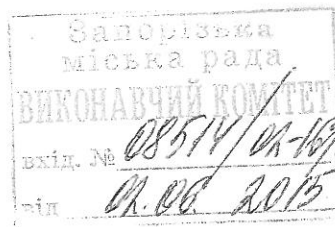 Запорізька
міська рада
ВИКОНАВЧИЙ КОМІТЕТ
вхід. № 08514/02-16
від 02.06 2015